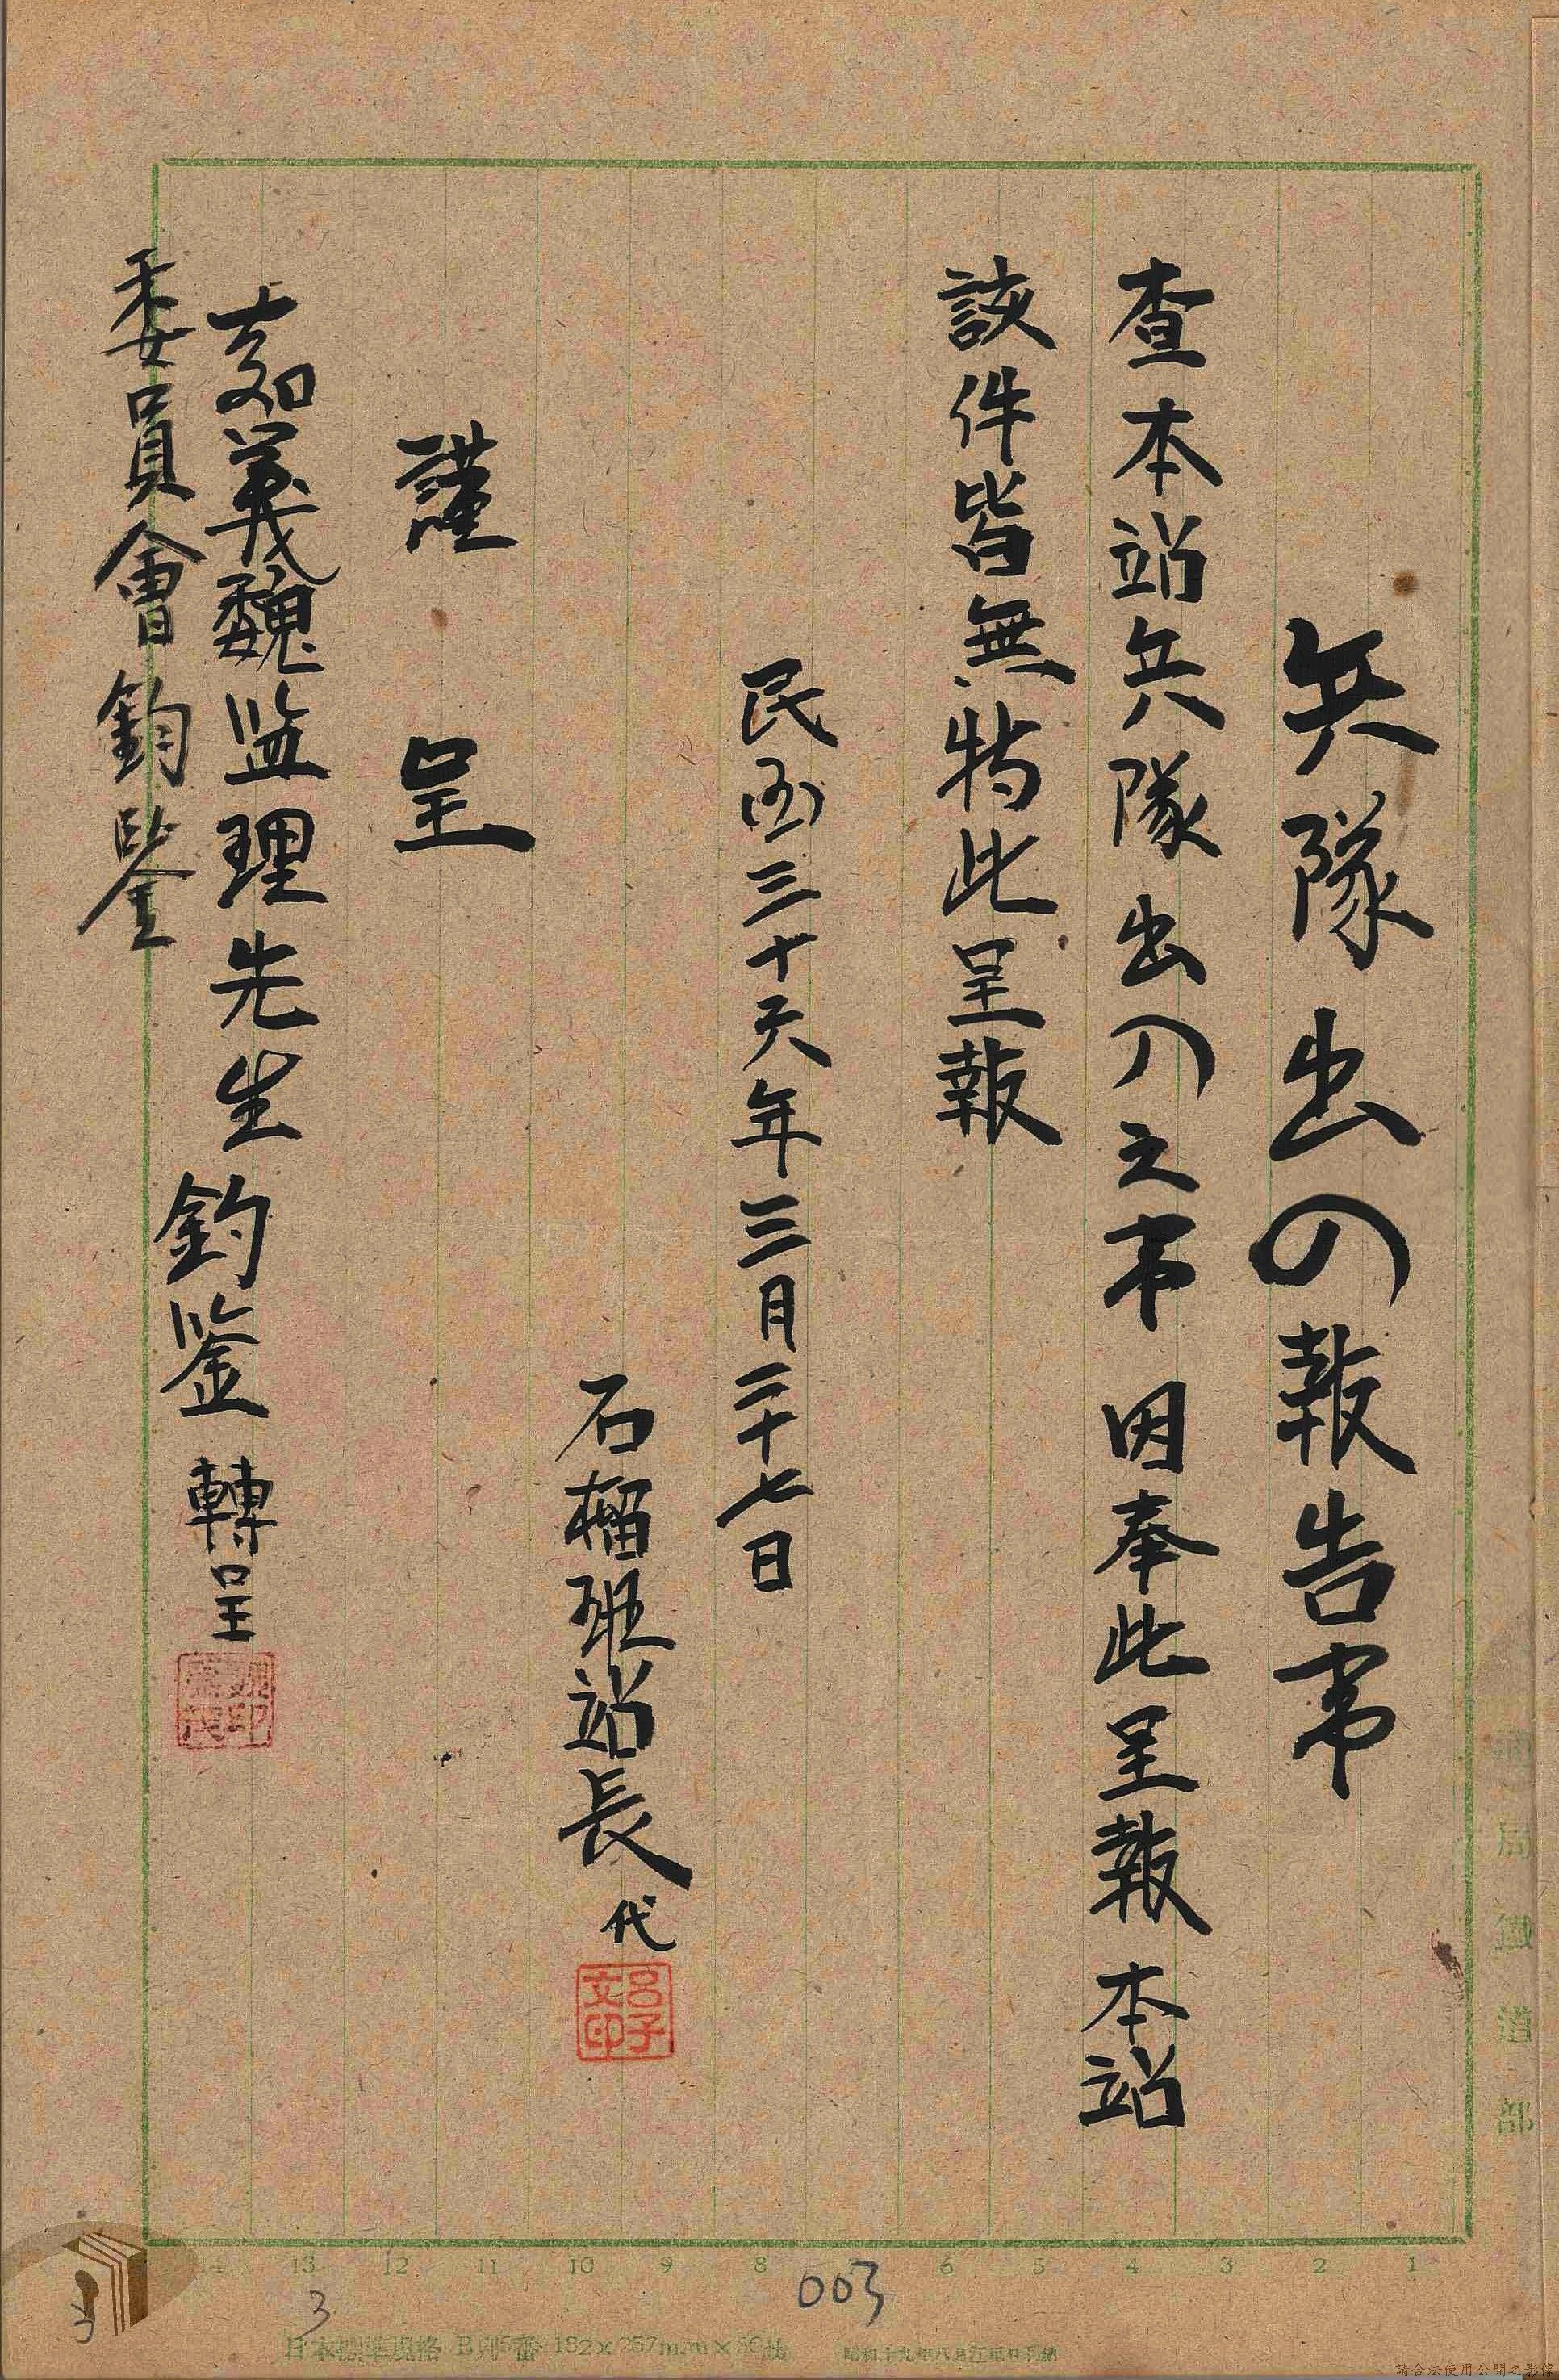 兵隊出入報告事
查本站兵隊出入之事因奉此呈報本站
該件皆無特此呈報
民国三十六年三月二十七日
石榴班站長代
呂子文印
謹呈
嘉義魏监理先生鈞鉴轉呈
委員會鈞鑒
局 道部
14 13 12 11 10 9 8 6 5 4 3 2 1
3
003
日本標準規格 B列5番 182×257m/m×50枚
請合法使用公開之影像